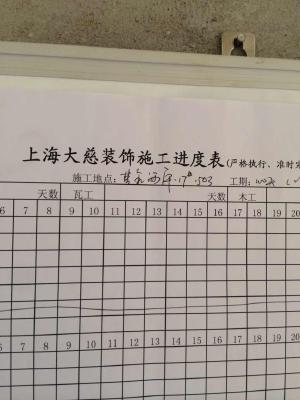 上海大慈装饰施工进度表(严格执行、准时
施工地点: 17# 503 工期:
天数 瓦工 天数 木工
6 7 8 9 10 11 12 13 14 15 16 17 18 19 20
6 7 8 9 10 11 12 13 14 15 16 17 18 19 20